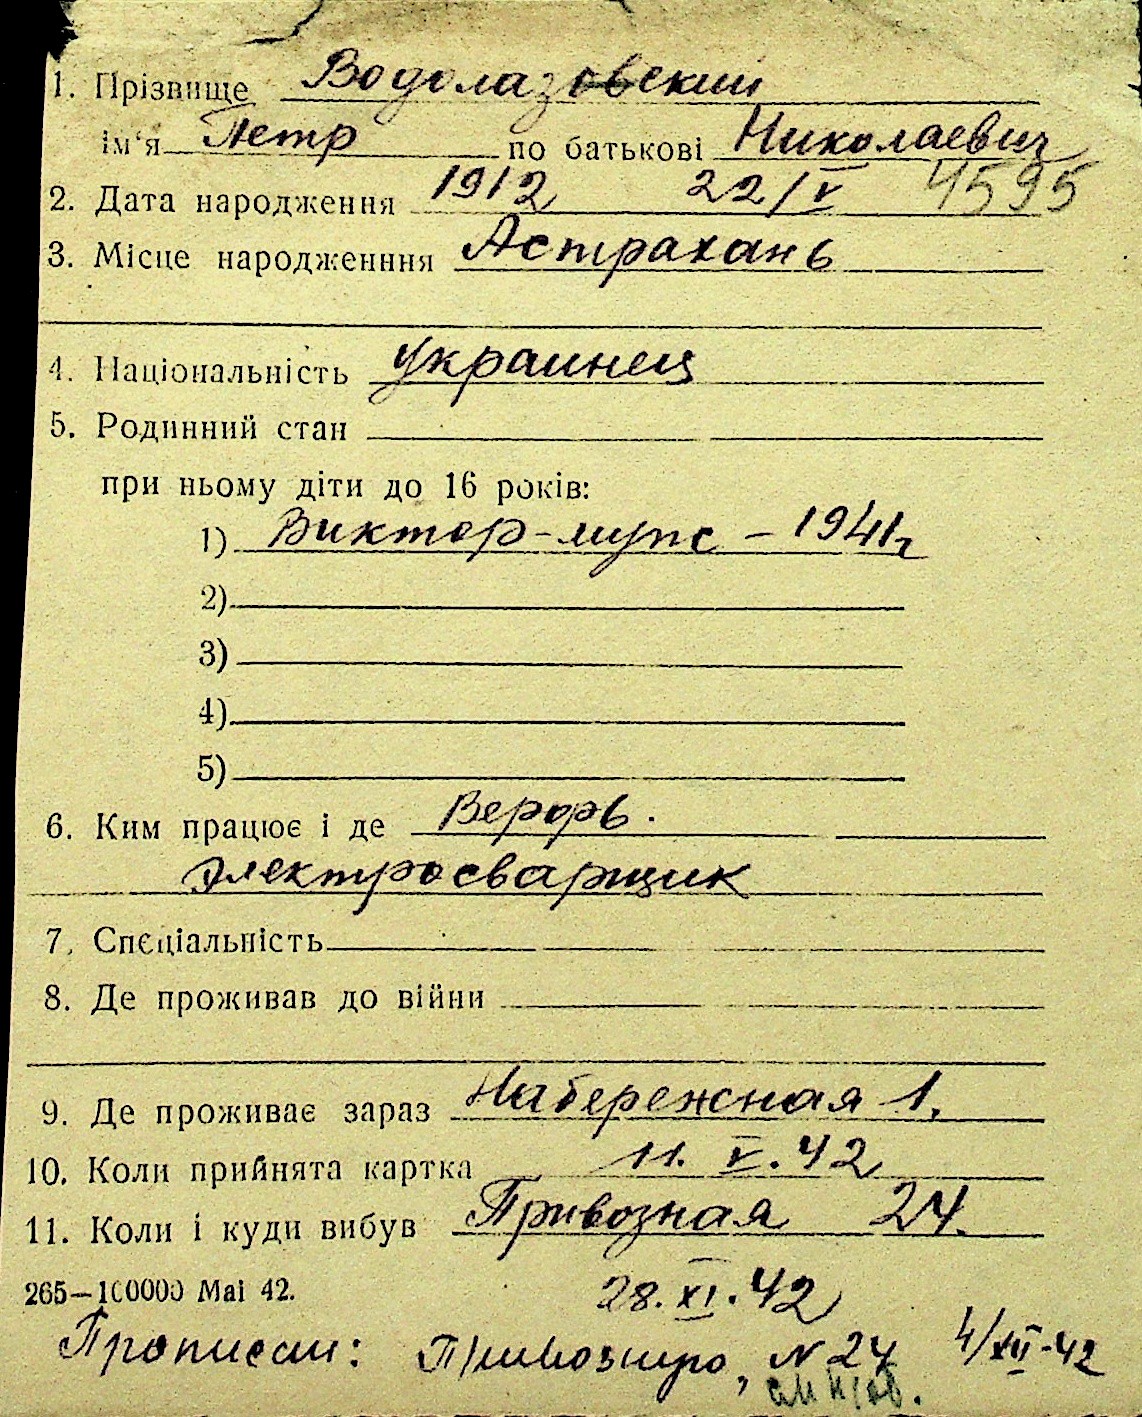 1. Прізвище Водолазовский
ім'я Петр по батькові Николаевич
2. Дата народження 1912 22/V 4595
3. Місце народженння Астрахань
4. Національність украинец
5. Родинний стан
при ньому діти до 16 років:
1) Виктор - - 1941г
2)
3)
4)
5)
6. Ким працює і де Верфь.
электросварщик
7. Спеціальність
8. Де проживав до війни
9. Де проживає зараз Набережная 1.
10. Коли прийнята картка 11. V. 42
11. Коли і куди вибув Привозная 24.
265—100000 Mai 42.
28. XI. 42
Прописан: Привозную, N 24 4/XII-42